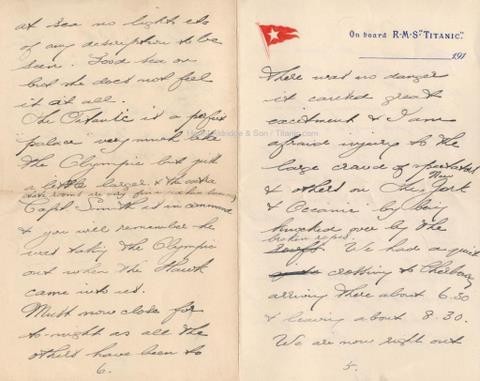 at sea no lights etc
of any description to be
seen. Good sea on
but she does not feel
it at all.
The Titanic is a perfect
palace very much like
the Olympic but just
a little larger & the extra
state rooms are very fine
Capt Smith is in command
& you will remember he
was taking the Olympic
out when the Hawk
came into us.
Must now close for
to-night as all the
others have been to
6.
On board R.M.S "TITANIC."
191
There was no danger
it caused great
excitement & I am
afraid injury to the
large crowd of spectators
& others on New York
& Oceanic by being
knocked over by the
broken ropes. We had a quick
crossing to Cherbourg
arriving there about 6.30
& leaving about 8.30.
We are now right out
5.
Aldridge & Son / Titanic.com